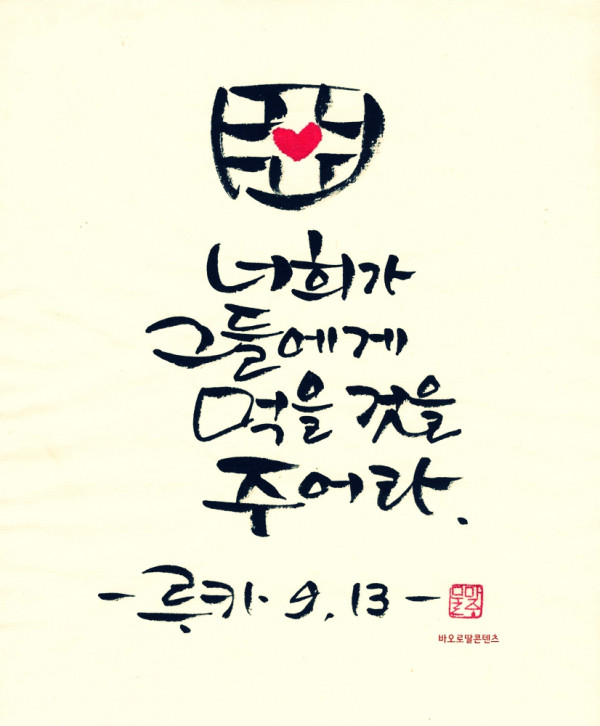 너희가
그들에게
먹을 것을
주어라.
- 루카 9, 13 -
바오로딸콘텐츠